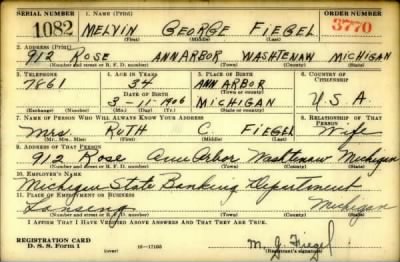 SERIAL NUMBER 1. NAME (Print) ORDER NUMBER
1082 MELVIN GEORGE FIEGEL 3770
(First) (Middle) (Last)
2. ADDRESS (Print)
912 ROSE ANN ARBOR WASHTENAW MICHIGAN
(Number and street or R. F. D. number) (Town) (County) (State)
3. TELEPHONE 4. AGE IN YEARS 5. PLACE OF BIRTH 6. COUNTRY OF CITIZENSHIP
7861 34 ANN ARBOR
DATE OF BIRTH (Town or county)
3-11-1906 MICHIGAN U.S.A.
(Exchange) (Number) (Mo.) (Day) (Yr.) (State or country)
7. NAME OF PERSON WHO WILL ALWAYS KNOW YOUR ADDRESS 8. RELATIONSHIP OF THAT PERSON
Mrs. RUTH C. FIEGEL Wife
(Mr., Mrs., Miss) (First) (Middle) (Last)
9. ADDRESS OF THAT PERSON
912 Rose Ann Arbor Washtenaw Michigan
(Number and street or R. F. D. number) (Town) (County) (State)
10. EMPLOYER'S NAME
Michigan State Banking Department
11. PLACE OF EMPLOYMENT OR BUSINESS
Lansing Michigan
(Number and street or R. F. D. number) (Town) (County) (State)
I AFFIRM THAT I HAVE VERIFIED ABOVE ANSWERS AND THAT THEY ARE TRUE.
REGISTRATION CARD
D. S. S. Form 1 (over) 16-17105 M. G. Fiegel
(Registrant's signature)